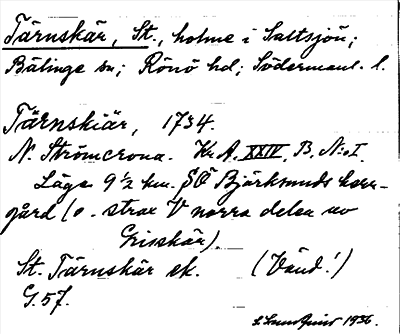 Tärnskär, St., holme i Saltsjön;
Bälinge sn; Rönö hd; Södermanl. l.
Tärnskiär, 1734.
N. Strömcrona. Kr. A. XXIV, B, N:o I.
Läge 9 ½ km. SÖ Björksunds herr-
gård (o. strax V norra delen av
Grisskär).
St. Tärnskär ek. (Vänd!)
G. 57.
1936.